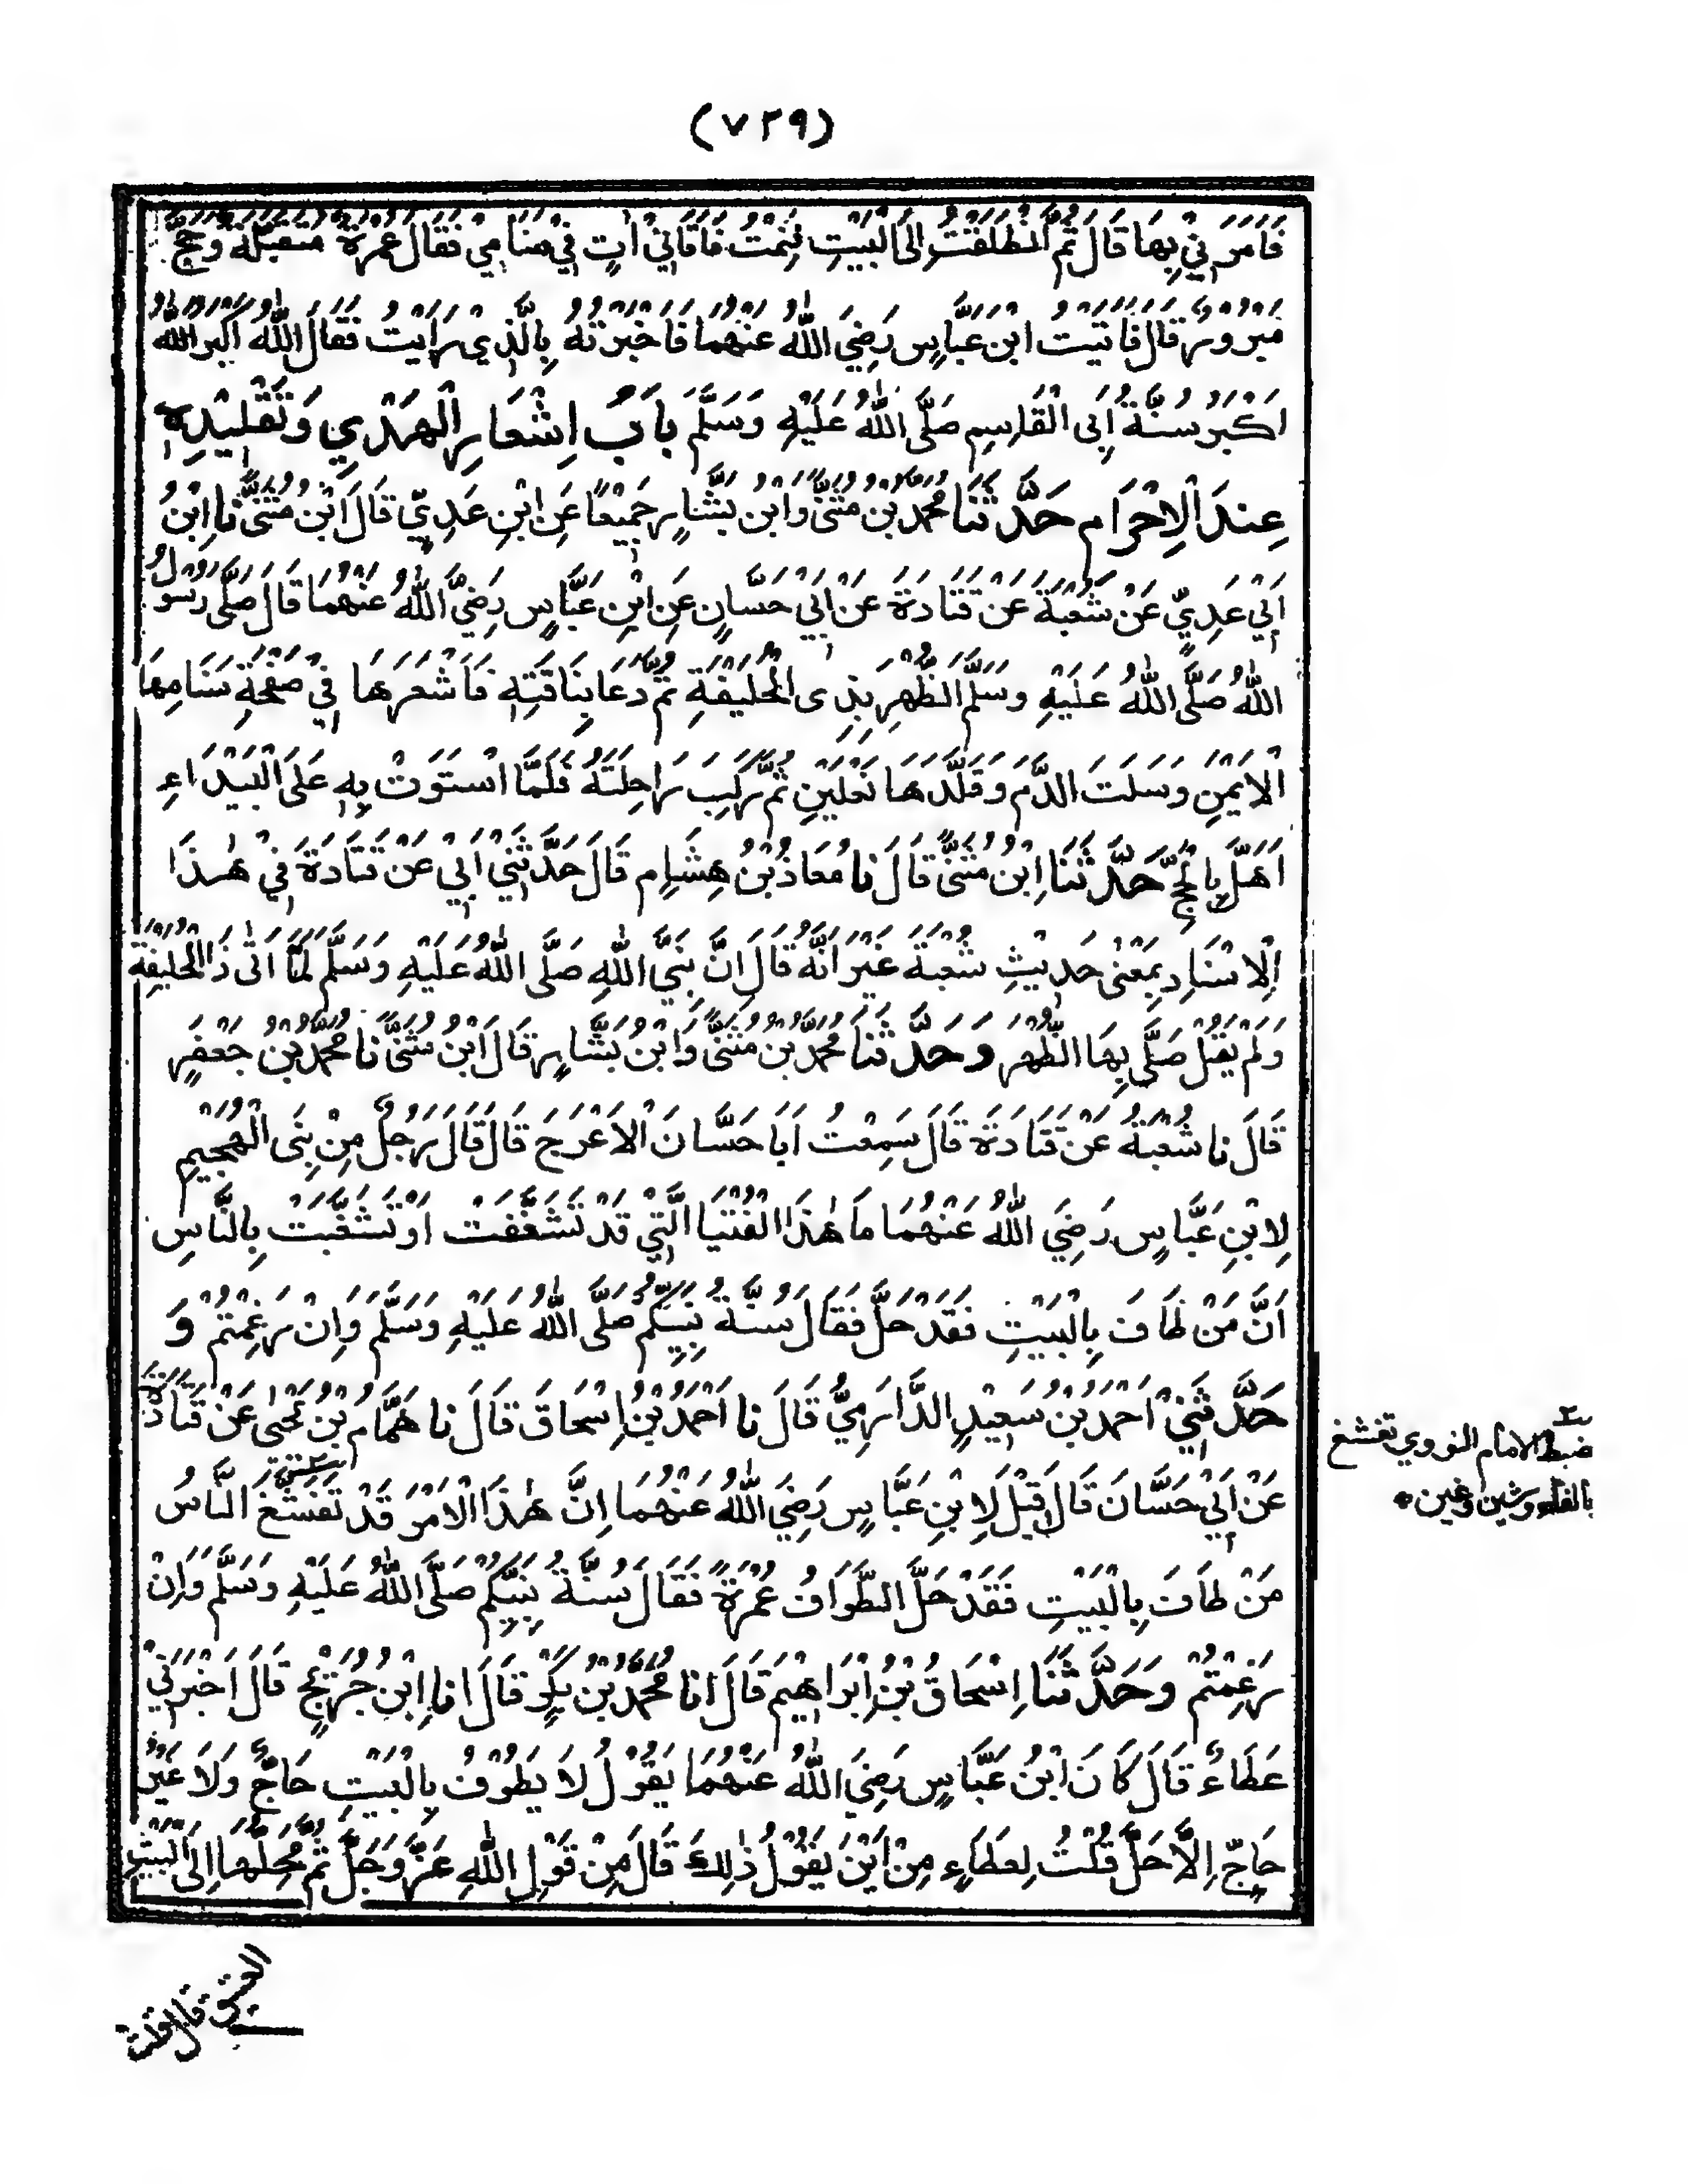 (٧٣٩)
فَاَمَرَنِيْ بِهَا قَالَ ثُمَّ انْطَلَقْتُ اِلَى الْبَيْتِ فَنِمْتُ فَاَتَانِيْ اٰتٍ فِيْ مَنَامِيْ فَقَالَ عُمْرَةٌ مُتَقَبَّلَةٌ وَحَجٌّ
مَبْرُوْرٌ قَالَ فَاَتَيْتُ ابْنَ عَبَّاسٍ رَضِيَ اللّٰهُ عَنْهُمَا فَاَخْبَرْتُهُ بِالَّذِيْ رَاَيْتُ فَقَالَ اللّٰهُ اَكْبَرُ اللّٰهُ
اَكْبَرُ سُنَّةُ اَبِى الْقَاسِمِ صَلَّى اللّٰهُ عَلَيْهِ وَسَلَّمَ بَابُ اِشْعَارِ الْهَدْيِ وَتَقْلِيْدِهٖ
عِنْدَ الْاِحْرَامِ حَدَّثَنَا مُحَمَّدُ بْنُ مُثَنًّى وَابْنُ بَشَّارٍ جَمِيْعًا عَنِ ابْنِ عَدِيٍّ قَالَ ابْنُ مُثَنًّى نَا ابْنُ
اَبِيْ عَدِيٍّ عَنْ شُعْبَةَ عَنْ قَتَادَةَ عَنْ اَبِيْ حَسَّانٍ عَنِ ابْنِ عَبَّاسٍ رَضِيَ اللّٰهُ عَنْهُمَا قَالَ صَلَّى رَسُوْلُ
اللّٰهِ صَلَّى اللّٰهُ عَلَيْهِ وَسَلَّمَ الظُّهْرَ بِذِى الْحُلَيْفَةِ ثُمَّ دَعَا بِنَاقَتِهٖ فَاَشْعَرَهَا فِيْ صَفْحَةِ سَنَامِهَا
الْاَيْمَنِ وَسَلَتَ الدَّمَ وَقَلَّدَهَا نَعْلَيْنِ ثُمَّ رَكِبَ رَاحِلَتَهُ فَلَمَّا اسْتَوَتْ بِهٖ عَلَى الْبَيْدَاءِ
اَهَلَّ بِالْحَجِّ حَدَّثَنَا ابْنُ مُثَنًّى قَالَ نَا مُعَاذُ بْنُ هِشَامٍ قَالَ حَدَّثَنِيْ اَبِيْ عَنْ قَتَادَةَ فِيْ هٰذَا
الْاِسْنَادِ بِمَعْنٰى حَدِيْثِ شُعْبَةَ غَيْرَ اَنَّهُ قَالَ اِنَّ نَبِيَّ اللّٰهِ صَلَّى اللّٰهُ عَلَيْهِ وَسَلَّمَ لَمَّا اَتٰى ذَا الْحُلَيْفَةِ
وَلَمْ يَقُلْ صَلَّى بِهَا الظُّهْرَ وَحَدَّثَنَا مُحَمَّدُ بْنُ مُثَنًّى وَابْنُ بَشَّارٍ قَالَ ابْنُ مُثَنًّى نَا مُحَمَّدُ بْنُ جَعْفَرٍ
قَالَ نَا شُعْبَةُ عَنْ قَتَادَةَ قَالَ سَمِعْتُ اَبَا حَسَّانَ الْاَعْرَجَ قَالَ قَالَ رَجُلٌ مِنْ بَنِى الْهُجَيْمِ
لِابْنِ عَبَّاسٍ رَضِيَ اللّٰهُ عَنْهُمَا مَا هٰذَا الْفُتْيَا الَّتِيْ قَدْ تَشَغَّفَتْ اَوْ تَشَغَّبَتْ بِالنَّاسِ
اَنَّ مَنْ طَافَ بِالْبَيْتِ فَقَدْ حَلَّ فَقَالَ سُنَّةُ نَبِيِّكُمْ صَلَّى اللّٰهُ عَلَيْهِ وَسَلَّمَ وَاِنْ رَغِمْتُمْ وَ
حَدَّثَنِيْ اَحْمَدُ بْنُ سَعِيْدٍ الدَّارِمِيُّ قَالَ نَا اَحْمَدُ بْنُ اِسْحَاقَ قَالَ نَا هَمَّامُ بْنُ يَحْيٰى عَنْ قَتَادَةَ
عَنْ اَبِيْ حَسَّانَ قَالَ قِيْلَ لِابْنِ عَبَّاسٍ رَضِيَ اللّٰهُ عَنْهُمَا اِنَّ هٰذَا الْاَمْرَ قَدْ تَفَشَّغَ النَّاسُ
مَنْ طَافَ بِالْبَيْتِ فَقَدْ حَلَّ الطَّوَافُ عُمْرَةٌ فَقَالَ سُنَّةُ نَبِيِّكُمْ صَلَّى اللّٰهُ عَلَيْهِ وَسَلَّمَ وَاِنْ
رَغِمْتُمْ وَحَدَّثَنَا اِسْحَاقُ بْنُ اِبْرَاهِيْمَ قَالَ اَنَا مُحَمَّدُ بْنُ بَكْرٍ قَالَ اَنَا ابْنُ جُرَيْجٍ قَالَ اَخْبَرَنِيْ
عَطَاءٌ قَالَ كَانَ ابْنُ عَبَّاسٍ رَضِيَ اللّٰهُ عَنْهُمَا يَقُوْلُ لَا يَطُوْفُ بِالْبَيْتِ حَاجٌّ وَلَا غَيْرُ
حَاجٍّ اِلَّا حَلَّ قُلْتُ لِعَطَاءٍ مِنْ اَيْنَ يَقُوْلُ ذٰلِكَ قَالَ مِنْ قَوْلِ اللّٰهِ عَزَّ وَجَلَّ ثُمَّ مَحِلُّهَا اِلَى الْبَيْتِ
ضبط الامام النووي تفشغ
بالفاء وشين وغين
العتيق قال قلت